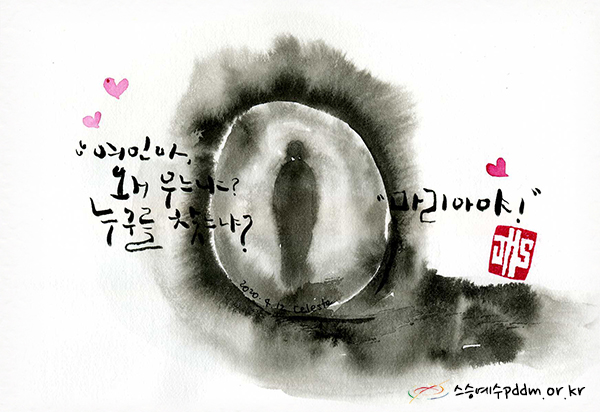 "여인아,
왜 우느냐?
누구를 찾느냐?
"마리아야!"
JHS
2020. 4. 12 Celeste
스승예수pddm.or.kr